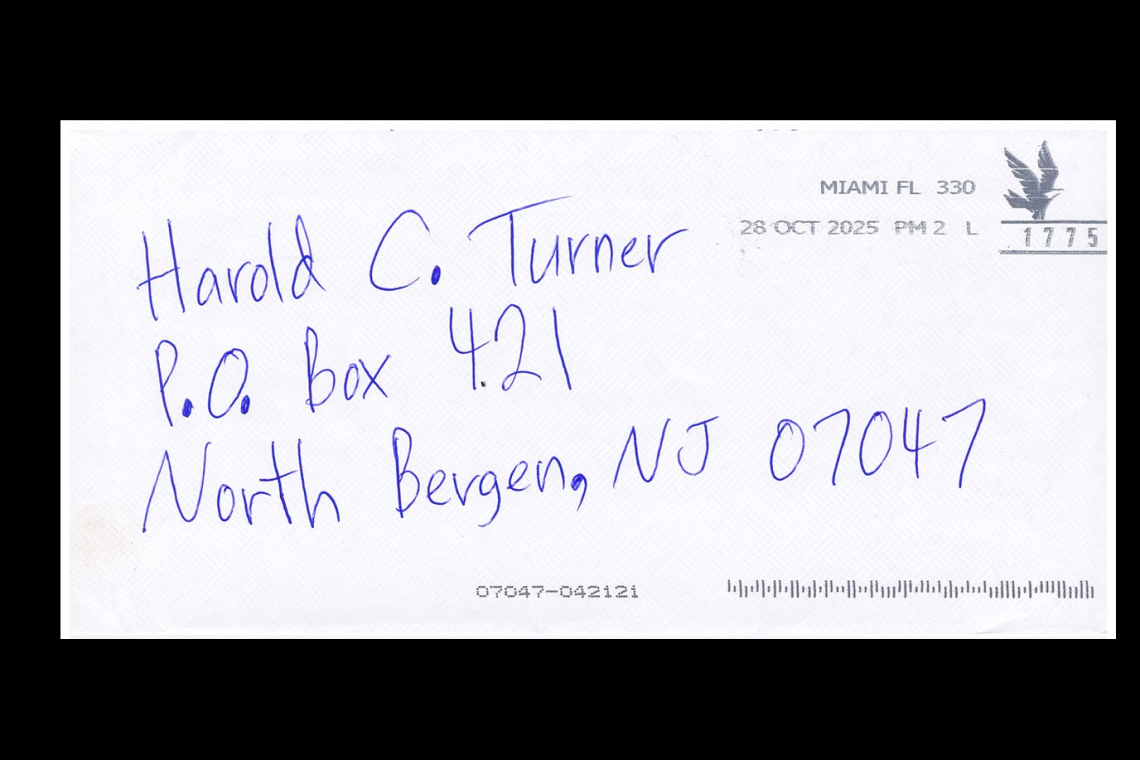 MIAMI FL 330
28 OCT 2025 PM 2 L
1775
Harold C. Turner
P.O. Box 421
North Bergen, NJ 07047
07047-042121